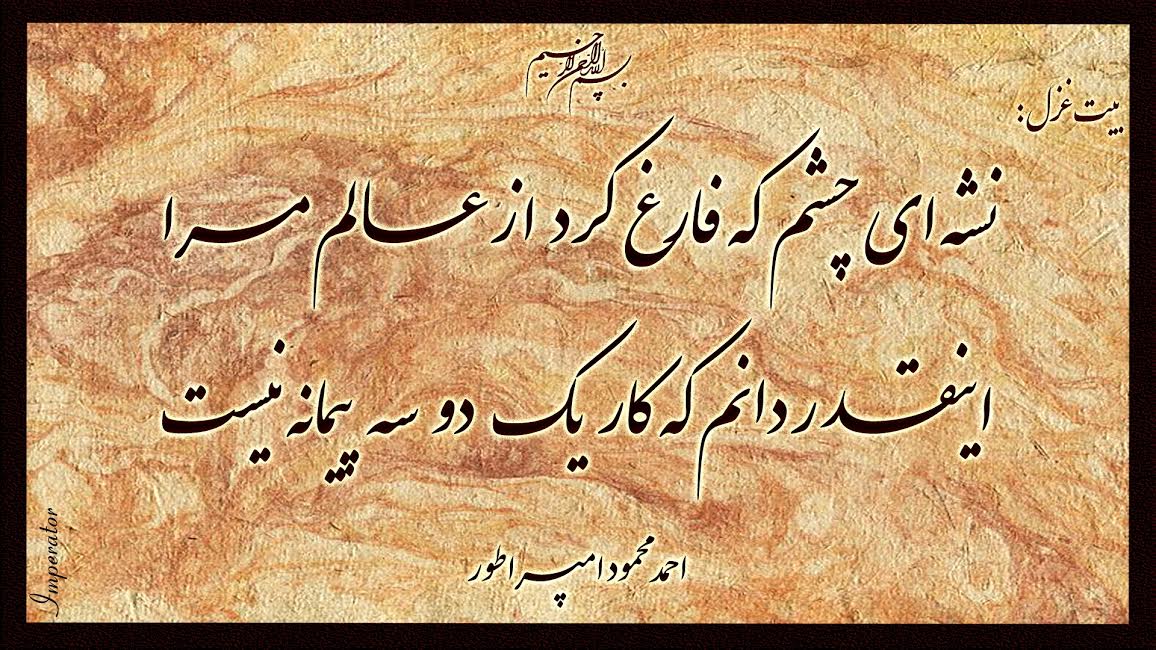 بسم الله الرحمن الرحیم
بیت غزل:
نشه ای چشم که فارغ کرد از عالم مرا
اینقدر دانم که کار یک دو سه پیمانه نیست
احمد محمود امپراطور
Imperator